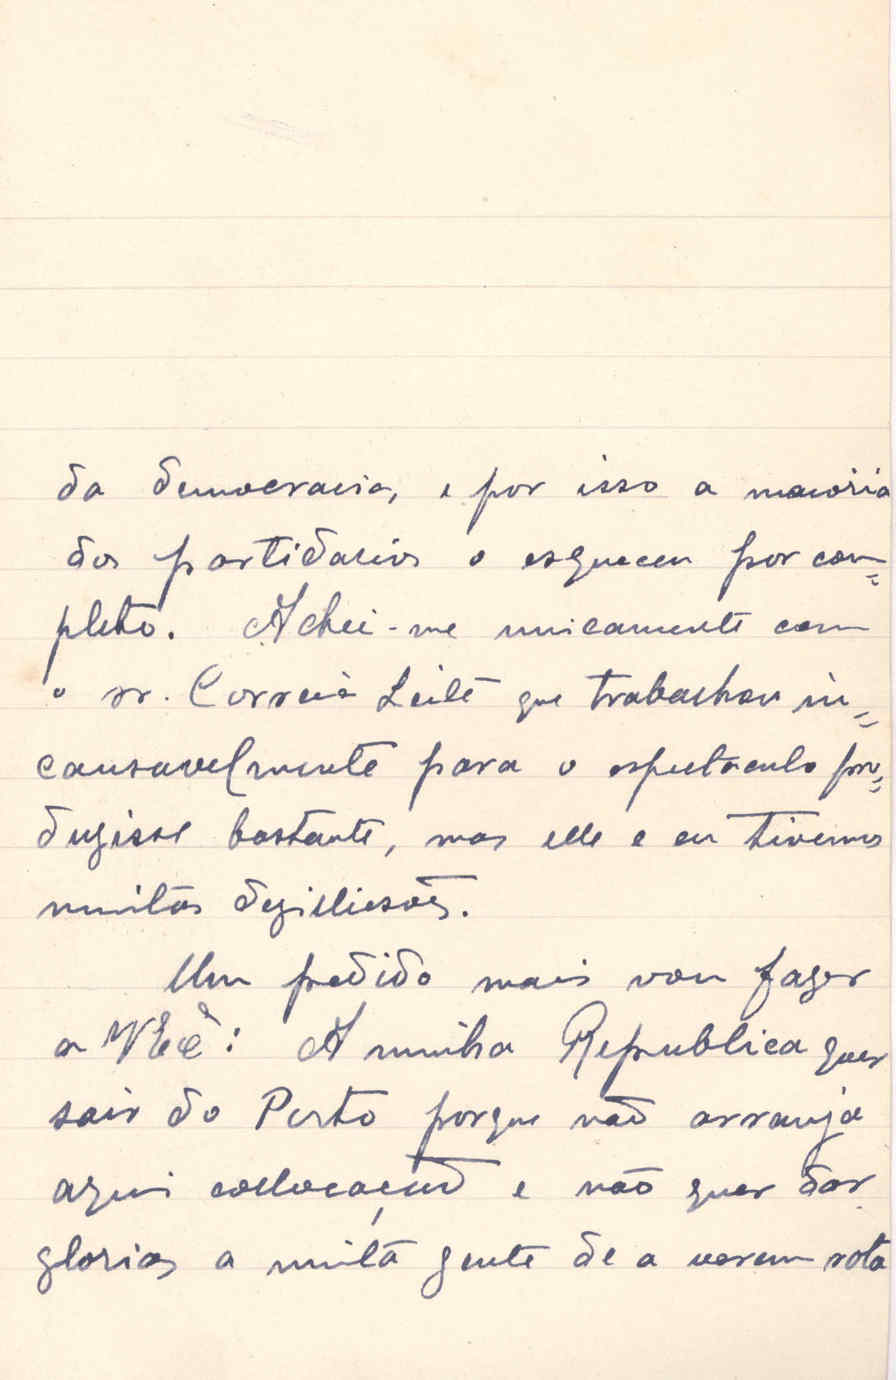 da democracia, e por isso a maioria
dos partidarios o esqueceu por com=
pleto. Achei-me unicamente com
o sr. Correia Leite que trabalhou in=
cansavelmente para o espectaculo pro=
duzisse bastante, mas elle e eu tivemos
muitas dezillusões.
Um pedido mais vou fazer
a VEcê: A minha Republica quer
sair do Porto porque não arranja
aqui collocação e não quer dar
glorias a muita gente de a verem rota